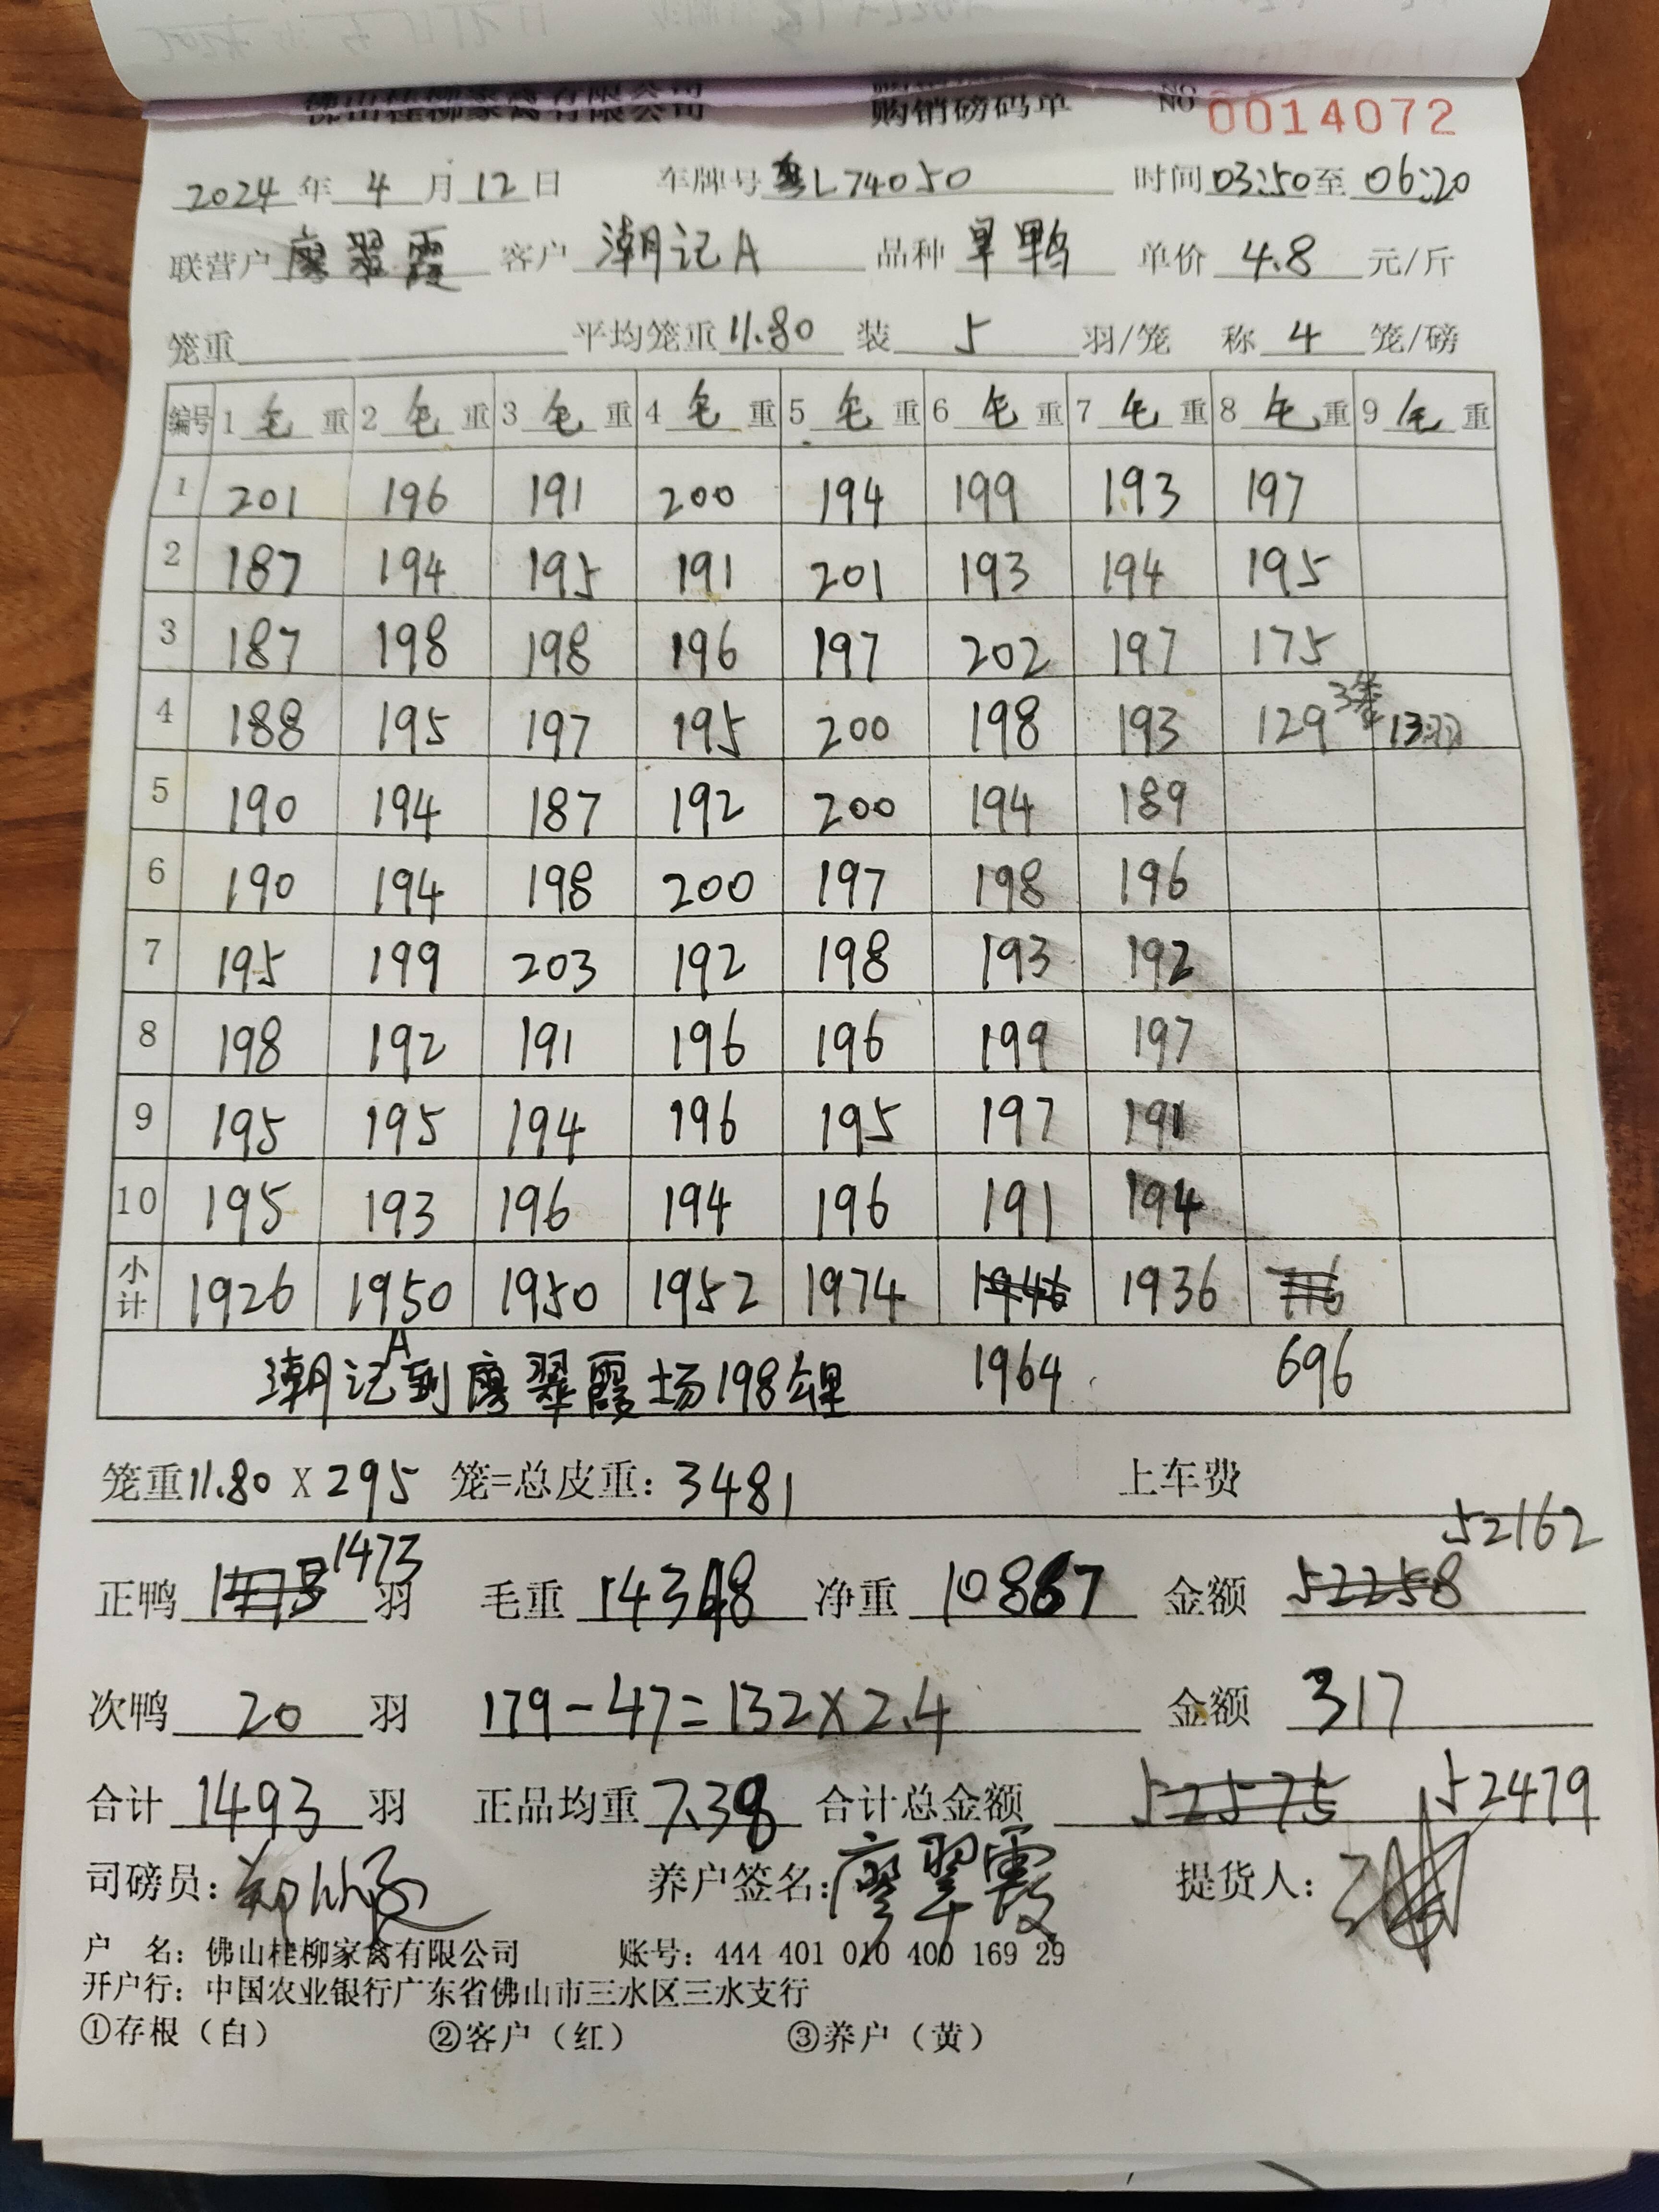 佛山桂柳家禽有限公司 购销磅码单 NO 0014072
2024年4月12日 车牌号粤L74050 时间03:50至06:20
联营户廖翠霞 客户潮记A 品种旱鸭 单价4.8元/斤
笼重 平均笼重11.80 装5羽/笼 称4笼/磅
编号 1毛重 2毛重 3毛重 4毛重 5毛重 6毛重 7毛重 8毛重 9毛重
1 201 196 191 200 194 199 193 197
2 187 194 195 191 201 193 194 195
3 187 198 198 196 197 202 197 175
4 188 195 197 195 200 198 193 129 3笼 13羽
5 190 194 187 192 200 194 189
6 190 194 198 200 197 198 196
7 195 199 203 192 198 193 192
8 198 192 191 196 196 199 197
9 195 195 194 196 195 197 191
10 195 193 196 194 196 191 194
小计 1926 1950 1950 1952 1974 1946 1936 716
潮记A到廖翠霞场198公里 1964 696
笼重11.80X295笼=总皮重:3481 上车费
52162
正鸭1473羽 毛重14348 净重10867 金额52258
次鸭20羽 179-47=132X2.4 金额317
合计1493羽 正品均重7.38 合计总金额52575 52479
司磅员: 养户签名:廖翠霞 提货人:
户 名:佛山桂柳家禽有限公司 账号:444 401 010 400 169 29
开户行:中国农业银行广东省佛山市三水区三水支行
①存根(白) ②客户(红) ③养户(黄)